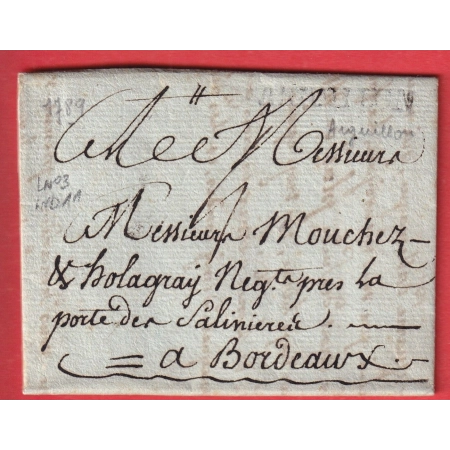 1789
Aiguillon
A Messieurs
Messieurs Mouchez
& holagraÿ Negts près la
porte des Salinieres.
= a Bordeaux.